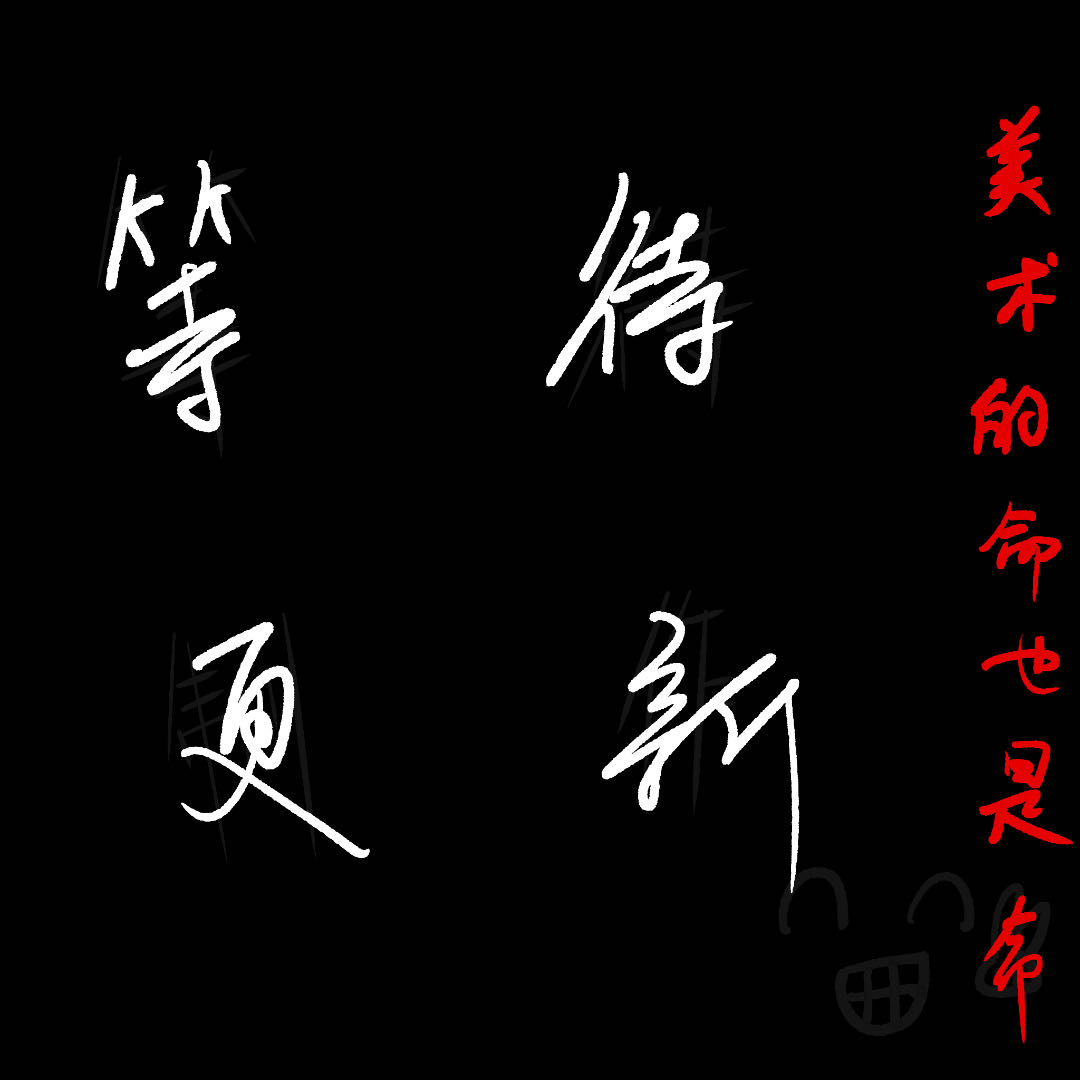 等待
更新
美术的命也是命